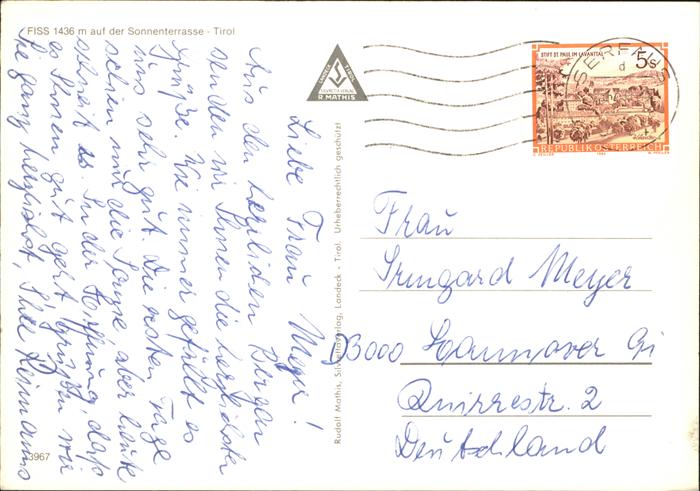 FISS 1436 m auf der Sonnenterrasse - Tirol
Liebe Frau Meyer!
Aus den herrlichen Bergen
senden wir Ihnen die herzlichsten
Grüße. Wie immer gefällt es
uns sehr gut. Die ersten Tage
schien nur die Sonne, aber heute
schneit es. In der Hoffnung, dass
es Ihnen gut geht grüßen wir
Sie ganz herzlichst, Ihre Heimanns
3967
R. MATHIS
Rudolf Mathis, Silvrettaverlag, Landeck - Tirol. Urheberrechtlich geschützt!
STIFT ST. PAUL IM LAVANTTAL
5 S
REPUBLIK ÖSTERREICH
SERFAUS
d
Frau
Irmgard Meyer
D3000 Hannover
Quirrestr. 2
Deutschland